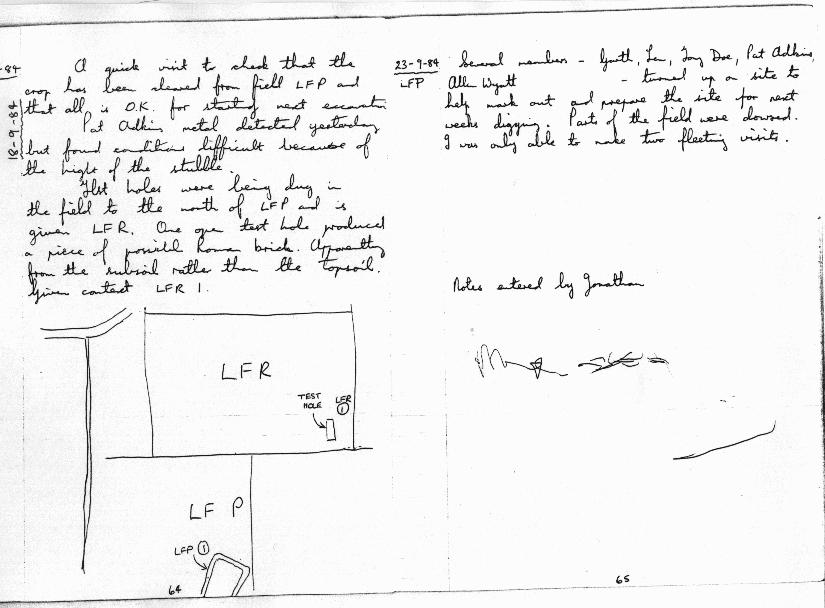 -84
A quick visit to check that the
crop has been cleared from field LFP and
that all is O.K. for starting next excavation
18-9-84
Pat Adkins metal detected yesterday
but found conditions difficult because of
the hight of the stubble.
Test holes were being dug in
the field to the north of LFP and is
given LFR. One open test hole produced
a piece of possible Roman brick. Apparently
from the subsoil rather than the topsoil.
Given context LFR 1.
LFR
TEST
HOLE
LFR
1
LFP
LFP 1
64
23-9-84
LFP
Several members - Gareth, Len, Tony Doe, Pat Adkins,
Allen Wyatt - turned up on site to
help mark out and prepare the site for next
weeks digging. Parts of the field were dowsed.
I was only able to make two fleeting visits.
Notes entered by Jonathan
65